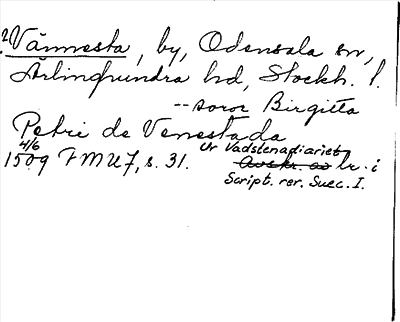 ?Vännesta, by, Odensala sn,
Ärlinghundra hd, Stockh. l.
--soror Birgitta
Petri de Venestada
4/6
1509 FMU7, s. 31. Ur Vadstenadiariet
Avskr. av br. i
Script. rer. Suec. I.